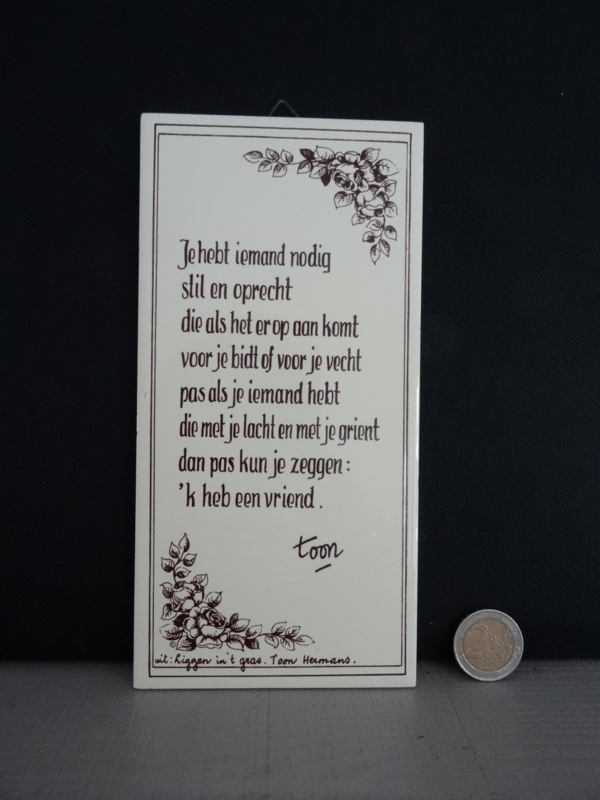 Je hebt iemand nodig
stil en oprecht
die als het erop aan komt
voor je bidt of voor je vecht
pas als je iemand hebt
die met je lacht en met je grient
dan pas kun je zeggen:
'k heb een vriend.
toon
uit: Liggen in 't gras. Toon Hermans.
2